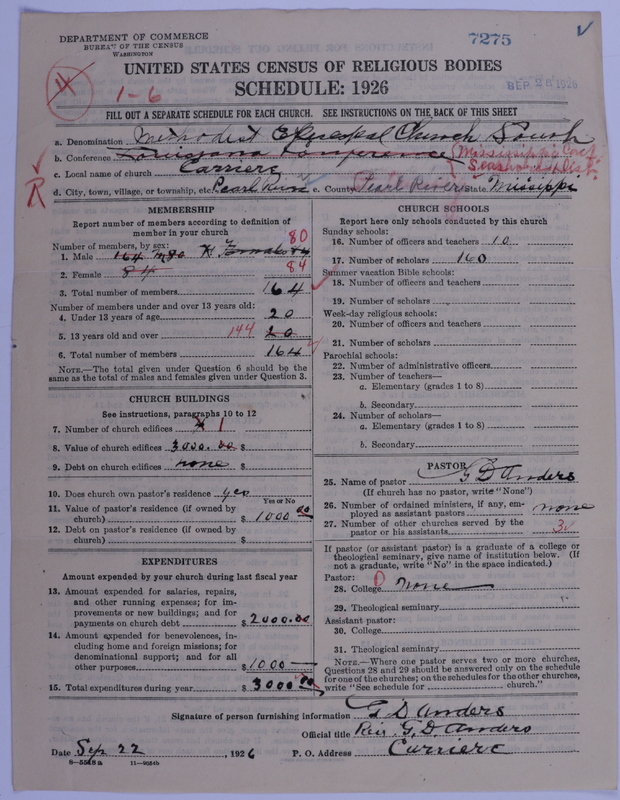 DEPARTMENT OF COMMERCE
BUREAU OF THE CENSUS
WASHINGTON
7275
UNITED STATES CENSUS OF RELIGIOUS BODIES
SCHEDULE: 1926
SEP 25 1926
1-6
FILL OUT A SEPARATE SCHEDULE FOR EACH CHURCH. SEE INSTRUCTIONS ON THE BACK OF THIS SHEET
a. Denomination Methodist Episcopal Church South
b. Conference Louisiana Conference Mississippi Conf. Seashore Dist.
c. Local name of church Carriere
R
d. City, town, village, or township, etc. Pearl River e. County Pearl River State Missippi
MEMBERSHIP
Report number of members according to definition of
member in your church
Number of members, by sex: 80
1. Male 164
2. Female 84 84
3. Total number of members 164
Number of members under and over 13 years old:
4. Under 13 years of age 20
5. 13 years old and over 144 20
6. Total number of members 164
NOTE.—The total given under Question 6 should be
same as the total of males and females given under Question 3.
CHURCH BUILDINGS
See instructions, paragraphs 10 to 12
7. Number of church edifices 1
8. Value of church edifices 3000.00 $
9. Debt on church edifices none $
10. Does church own pastor's residence yes
Yes or No
11. Value of pastor's residence (if owned by
church) $ 1000 00
12. Debt on pastor's residence (if owned by
church) $
EXPENDITURES
Amount expended by your church during last fiscal year
13. Amount expended for salaries, repairs,
and other running expenses; for im-
provements or new buildings; and for
payments on church debt $ 2000.00
14. Amount expended for benevolences, in-
cluding home and foreign missions; for
denominational support; and for all
other purposes $ 1000
15. Total expenditures during year $ 3000 00
CHURCH SCHOOLS
Report here only schools conducted by this church
Sunday schools:
16. Number of officers and teachers 10
17. Number of scholars 160
Summer vacation Bible schools:
18. Number of officers and teachers
19. Number of scholars
Week-day religious schools:
20. Number of officers and teachers
21. Number of scholars
Parochial schools:
22. Number of administrative officers
23. Number of teachers—
a. Elementary (grades 1 to 8)
b. Secondary
24. Number of scholars—
a. Elementary (grades 1 to 8)
b. Secondary
PASTOR
25. Name of pastor G D Anders
(If church has no pastor, write "None")
26. Number of ordained ministers, if any, em-
ployed as assistant pastors none
27. Number of other churches served by the
pastor or his assistants 3
If pastor (or assistant pastor) is a graduate of a college or
theological seminary, give name of institution below. (If
not a graduate, write "No" in the space indicated.)
Pastor:
28. College None
29. Theological seminary
Assistant pastor:
30. College
31. Theological seminary
NOTE.—Where one pastor serves two or more churches,
Questions 28 and 29 should be answered only on the schedule
for one of the churches; on the schedules for the other churches,
write "See schedule for church."
Signature of person furnishing information G D Anders
Official title Rev. G. D. Anders
Date Sep 22, 1926 P. O. Address Carriere
8—5518a 11—9084b